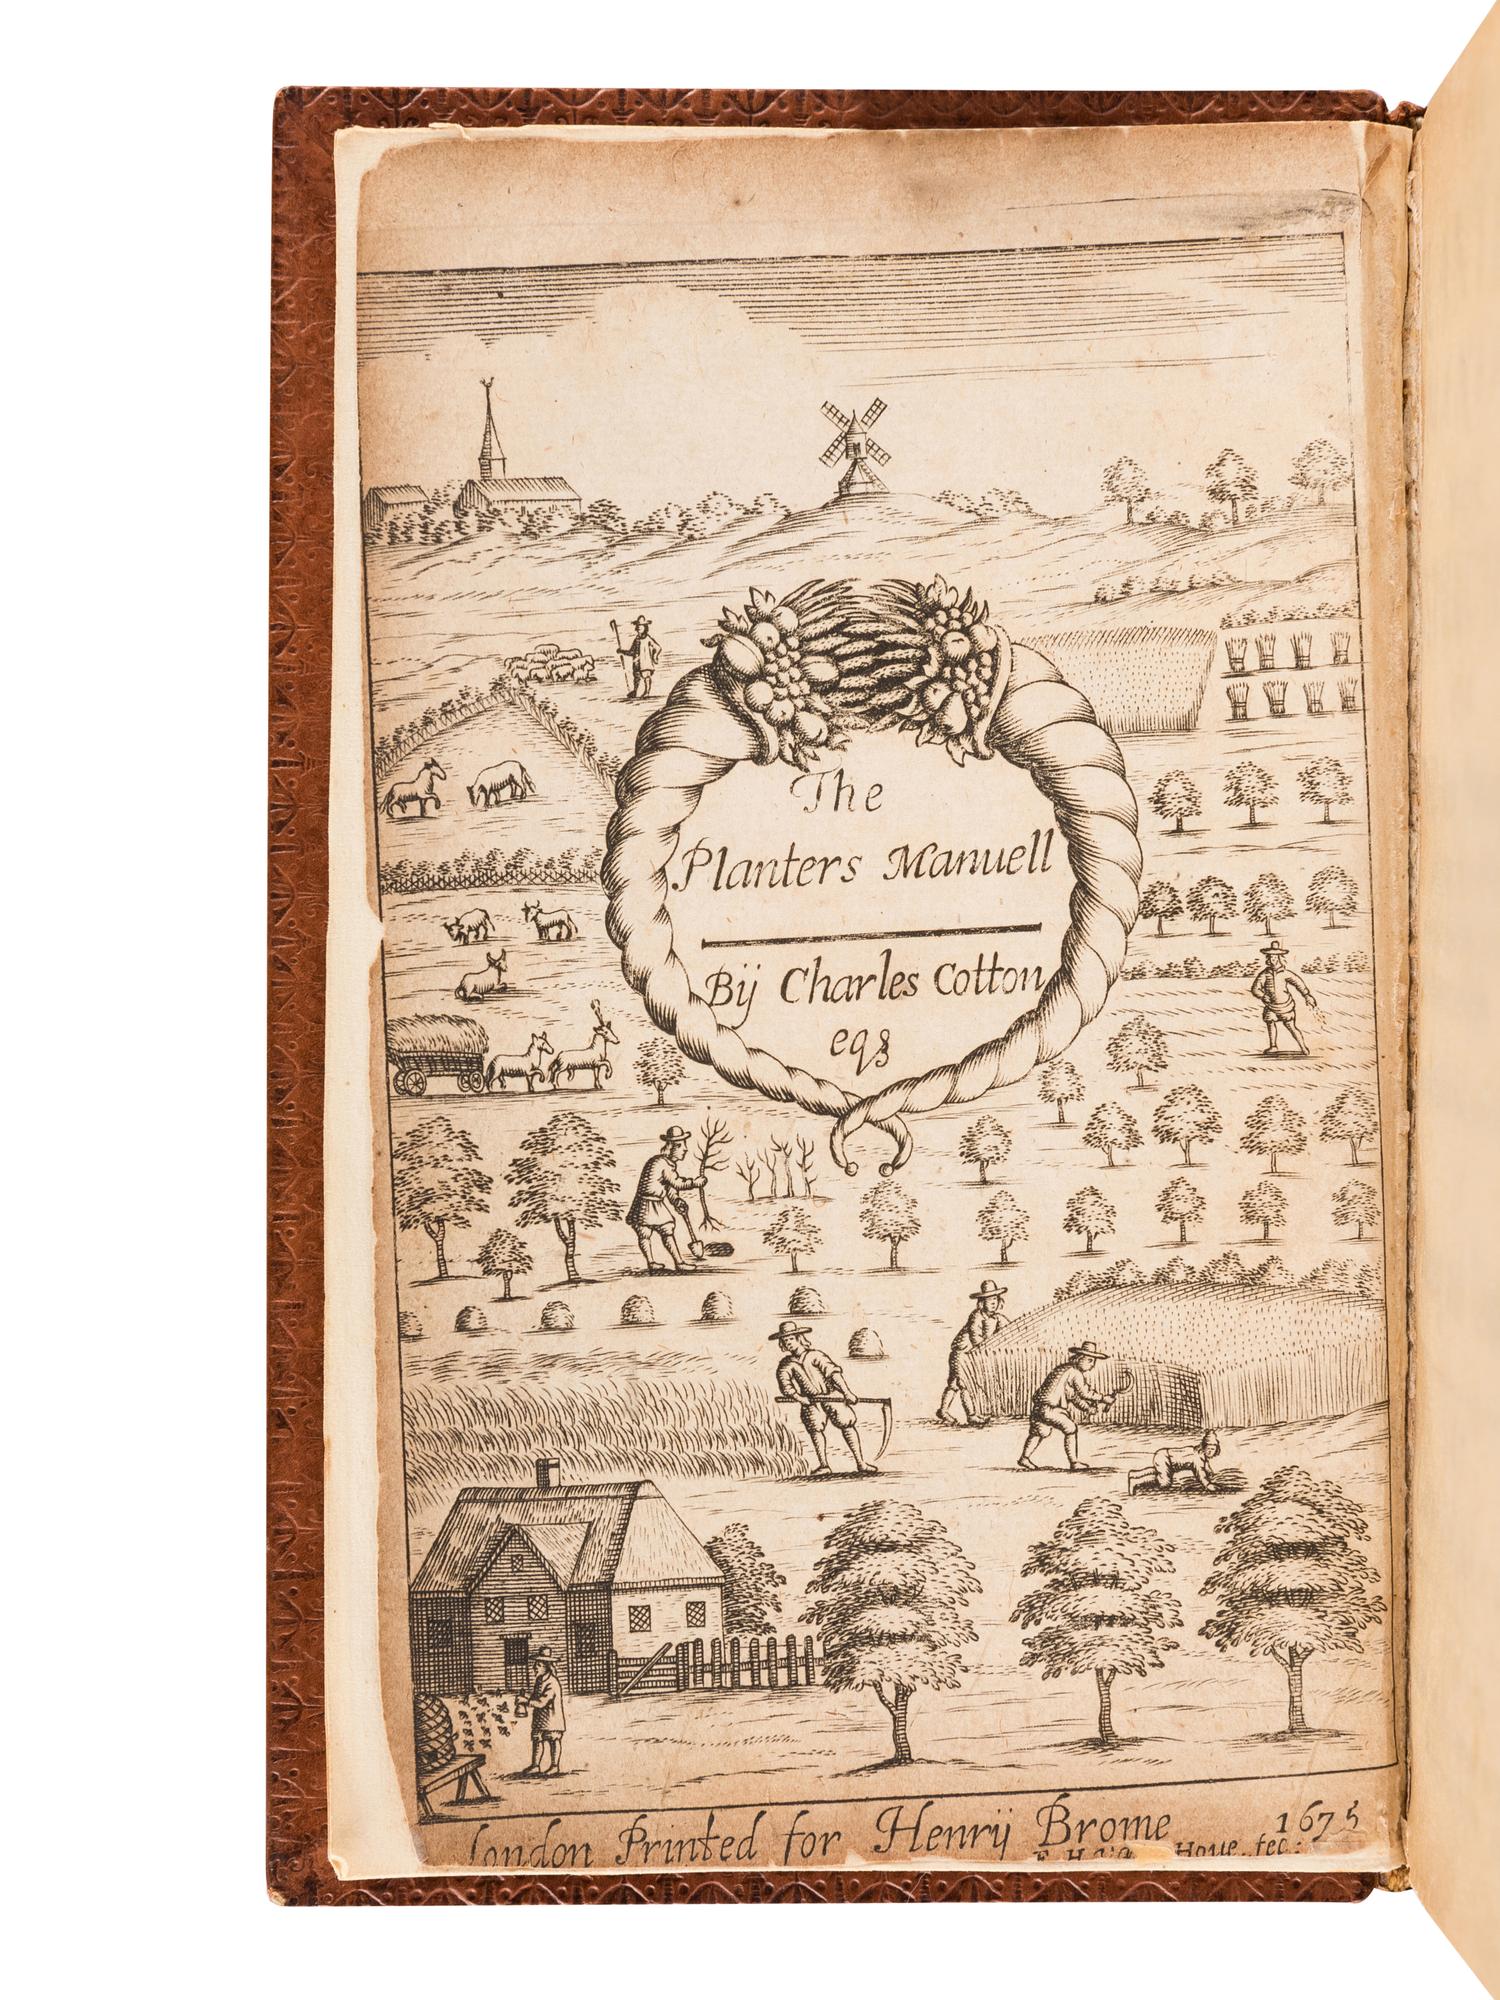 The
Planters Manuell
Bÿ Charles Cotton
eqȝ
London Printed for Henrÿ Brome 1675
Hove. fec: